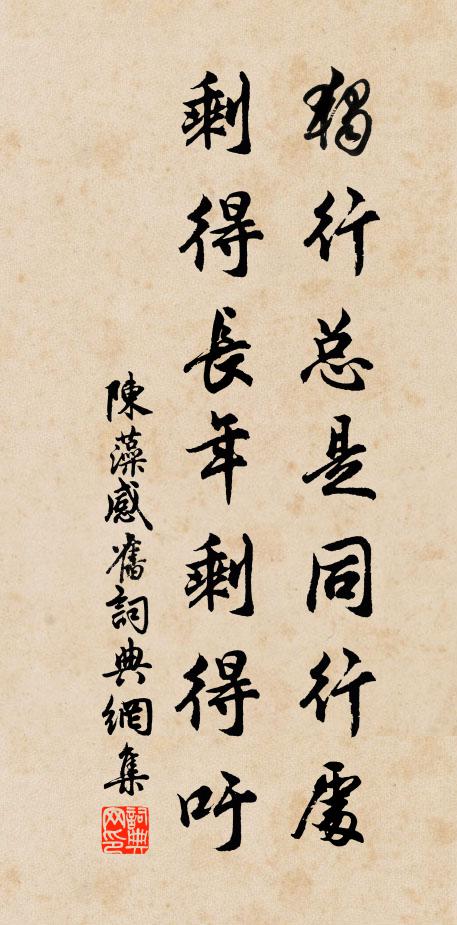 獨行总是同行處
剩得長年剩得吁
陳藻感舊詞典網集
詞典網印